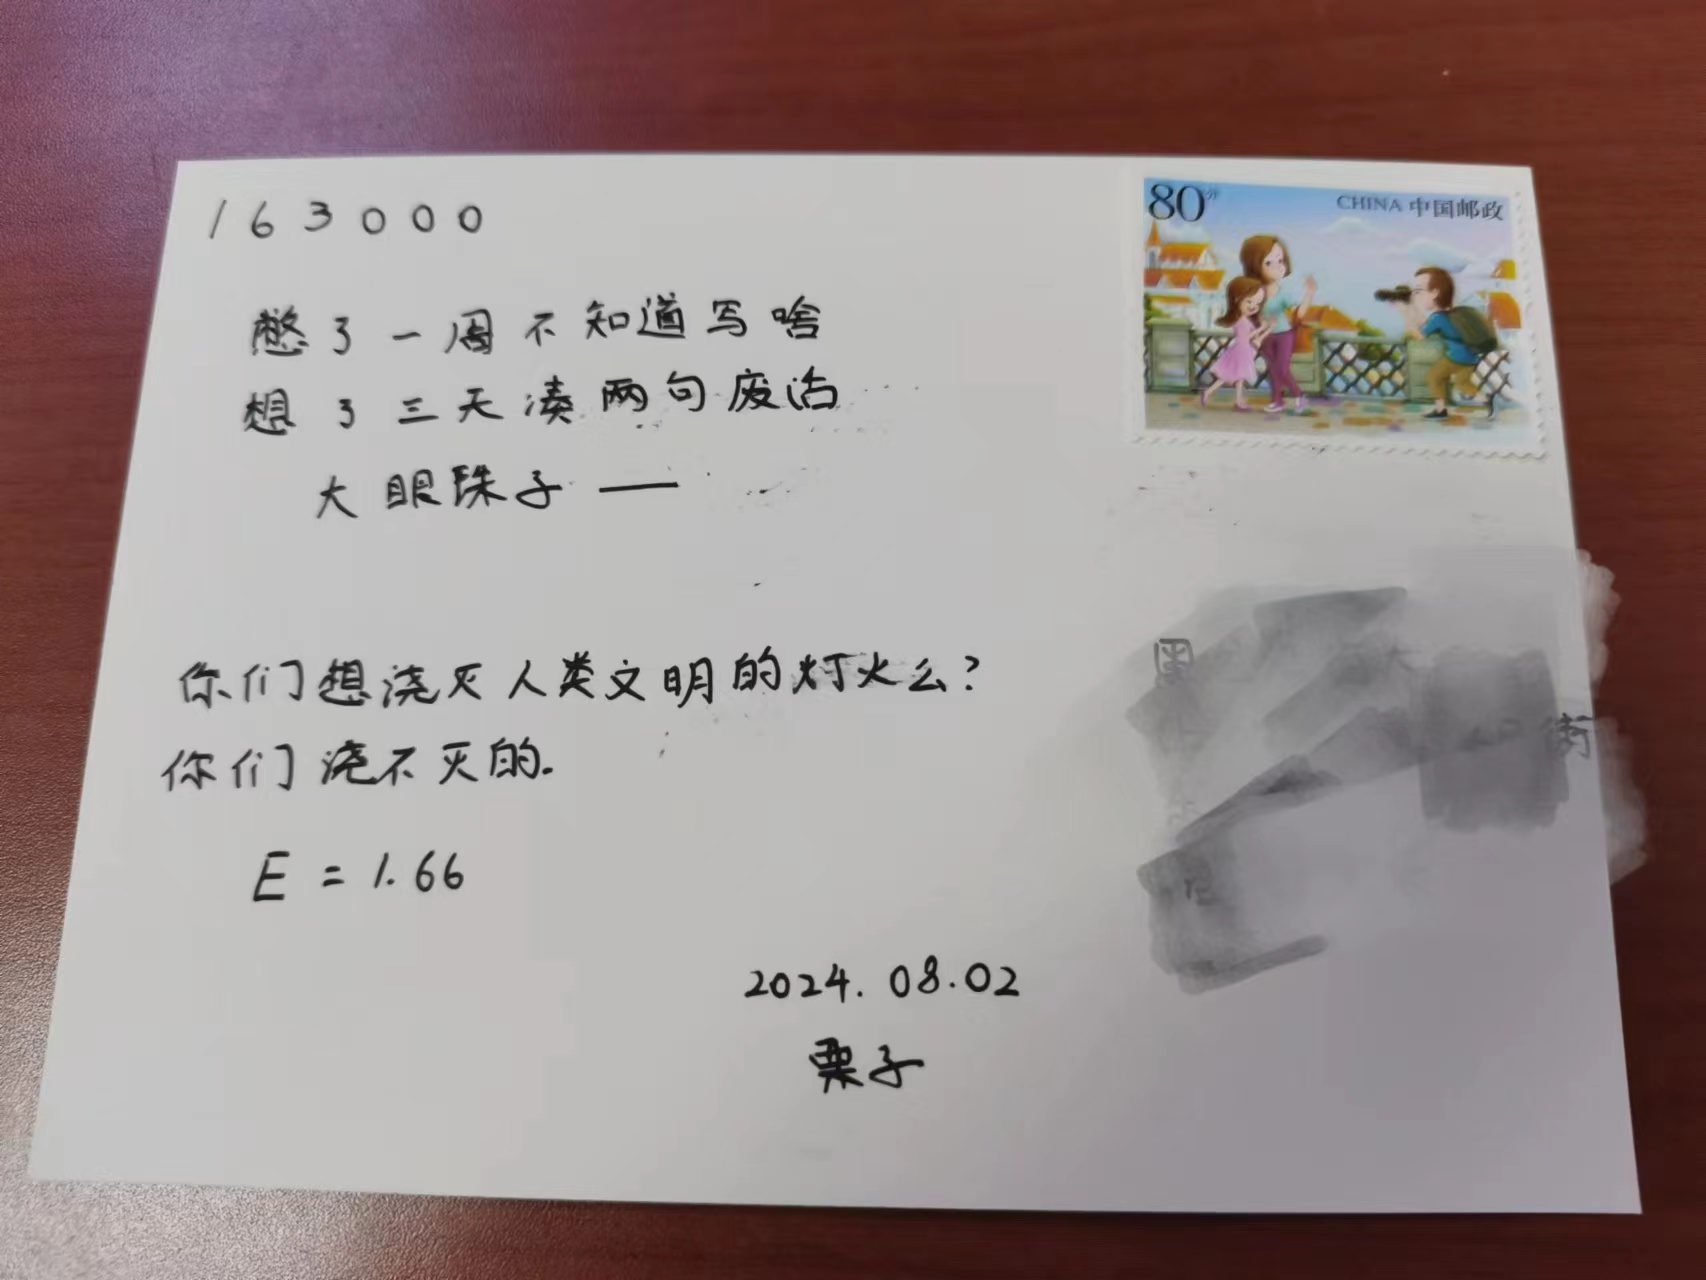 163000
80分
CHINA 中国邮政
憋了一周不知道写啥
想了三天凑两句废话
大眼珠子——
你们想浇灭人类文明的灯火么?
你们浇不灭的.
E = 1.66
街
2024.08.02
栗子